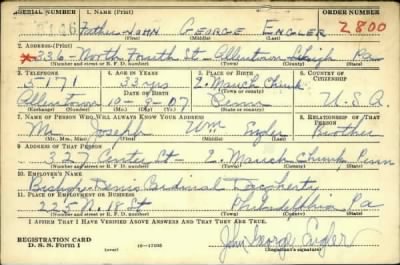 SERIAL NUMBER 1. NAME (Print) ORDER NUMBER
Father John George Engler 2800
(First) (Middle) (Last)
2. ADDRESS (Print)
336 - North Fourth St - Allentown Lehigh Pa
(Number and street or R. F. D. number) (Town) (County) (State)
3. TELEPHONE 4. AGE IN YEARS 5. PLACE OF BIRTH 6. COUNTRY OF CITIZENSHIP
5-171 33 yrs E. Mauch Chunk
DATE OF BIRTH (Town or county)
Allentown 10-9-07 Penna U.S.A.
(Exchange) (Number) (Mo.) (Day) (Yr.) (State or country)
7. NAME OF PERSON WHO WILL ALWAYS KNOW YOUR ADDRESS 8. RELATIONSHIP OF THAT PERSON
Mr Joseph Wm Engler Brother
(Mr., Mrs., Miss) (First) (Middle) (Last)
9. ADDRESS OF THAT PERSON
327 Center St - E. Mauch Chunk Penn
(Number and street or R. F. D. number) (Town) (County) (State)
10. EMPLOYER'S NAME
Bishop Denis Cardinal Dougherty
11. PLACE OF EMPLOYMENT OR BUSINESS
225 N. 18 St Philadelphia Pa
(Number and street or R. F. D. number) (Town) (County) (State)
I AFFIRM THAT I HAVE VERIFIED ABOVE ANSWERS AND THAT THEY ARE TRUE.
REGISTRATION CARD
D. S. S. FORM 1
16-17105
John George Engler
(Registrant's signature)